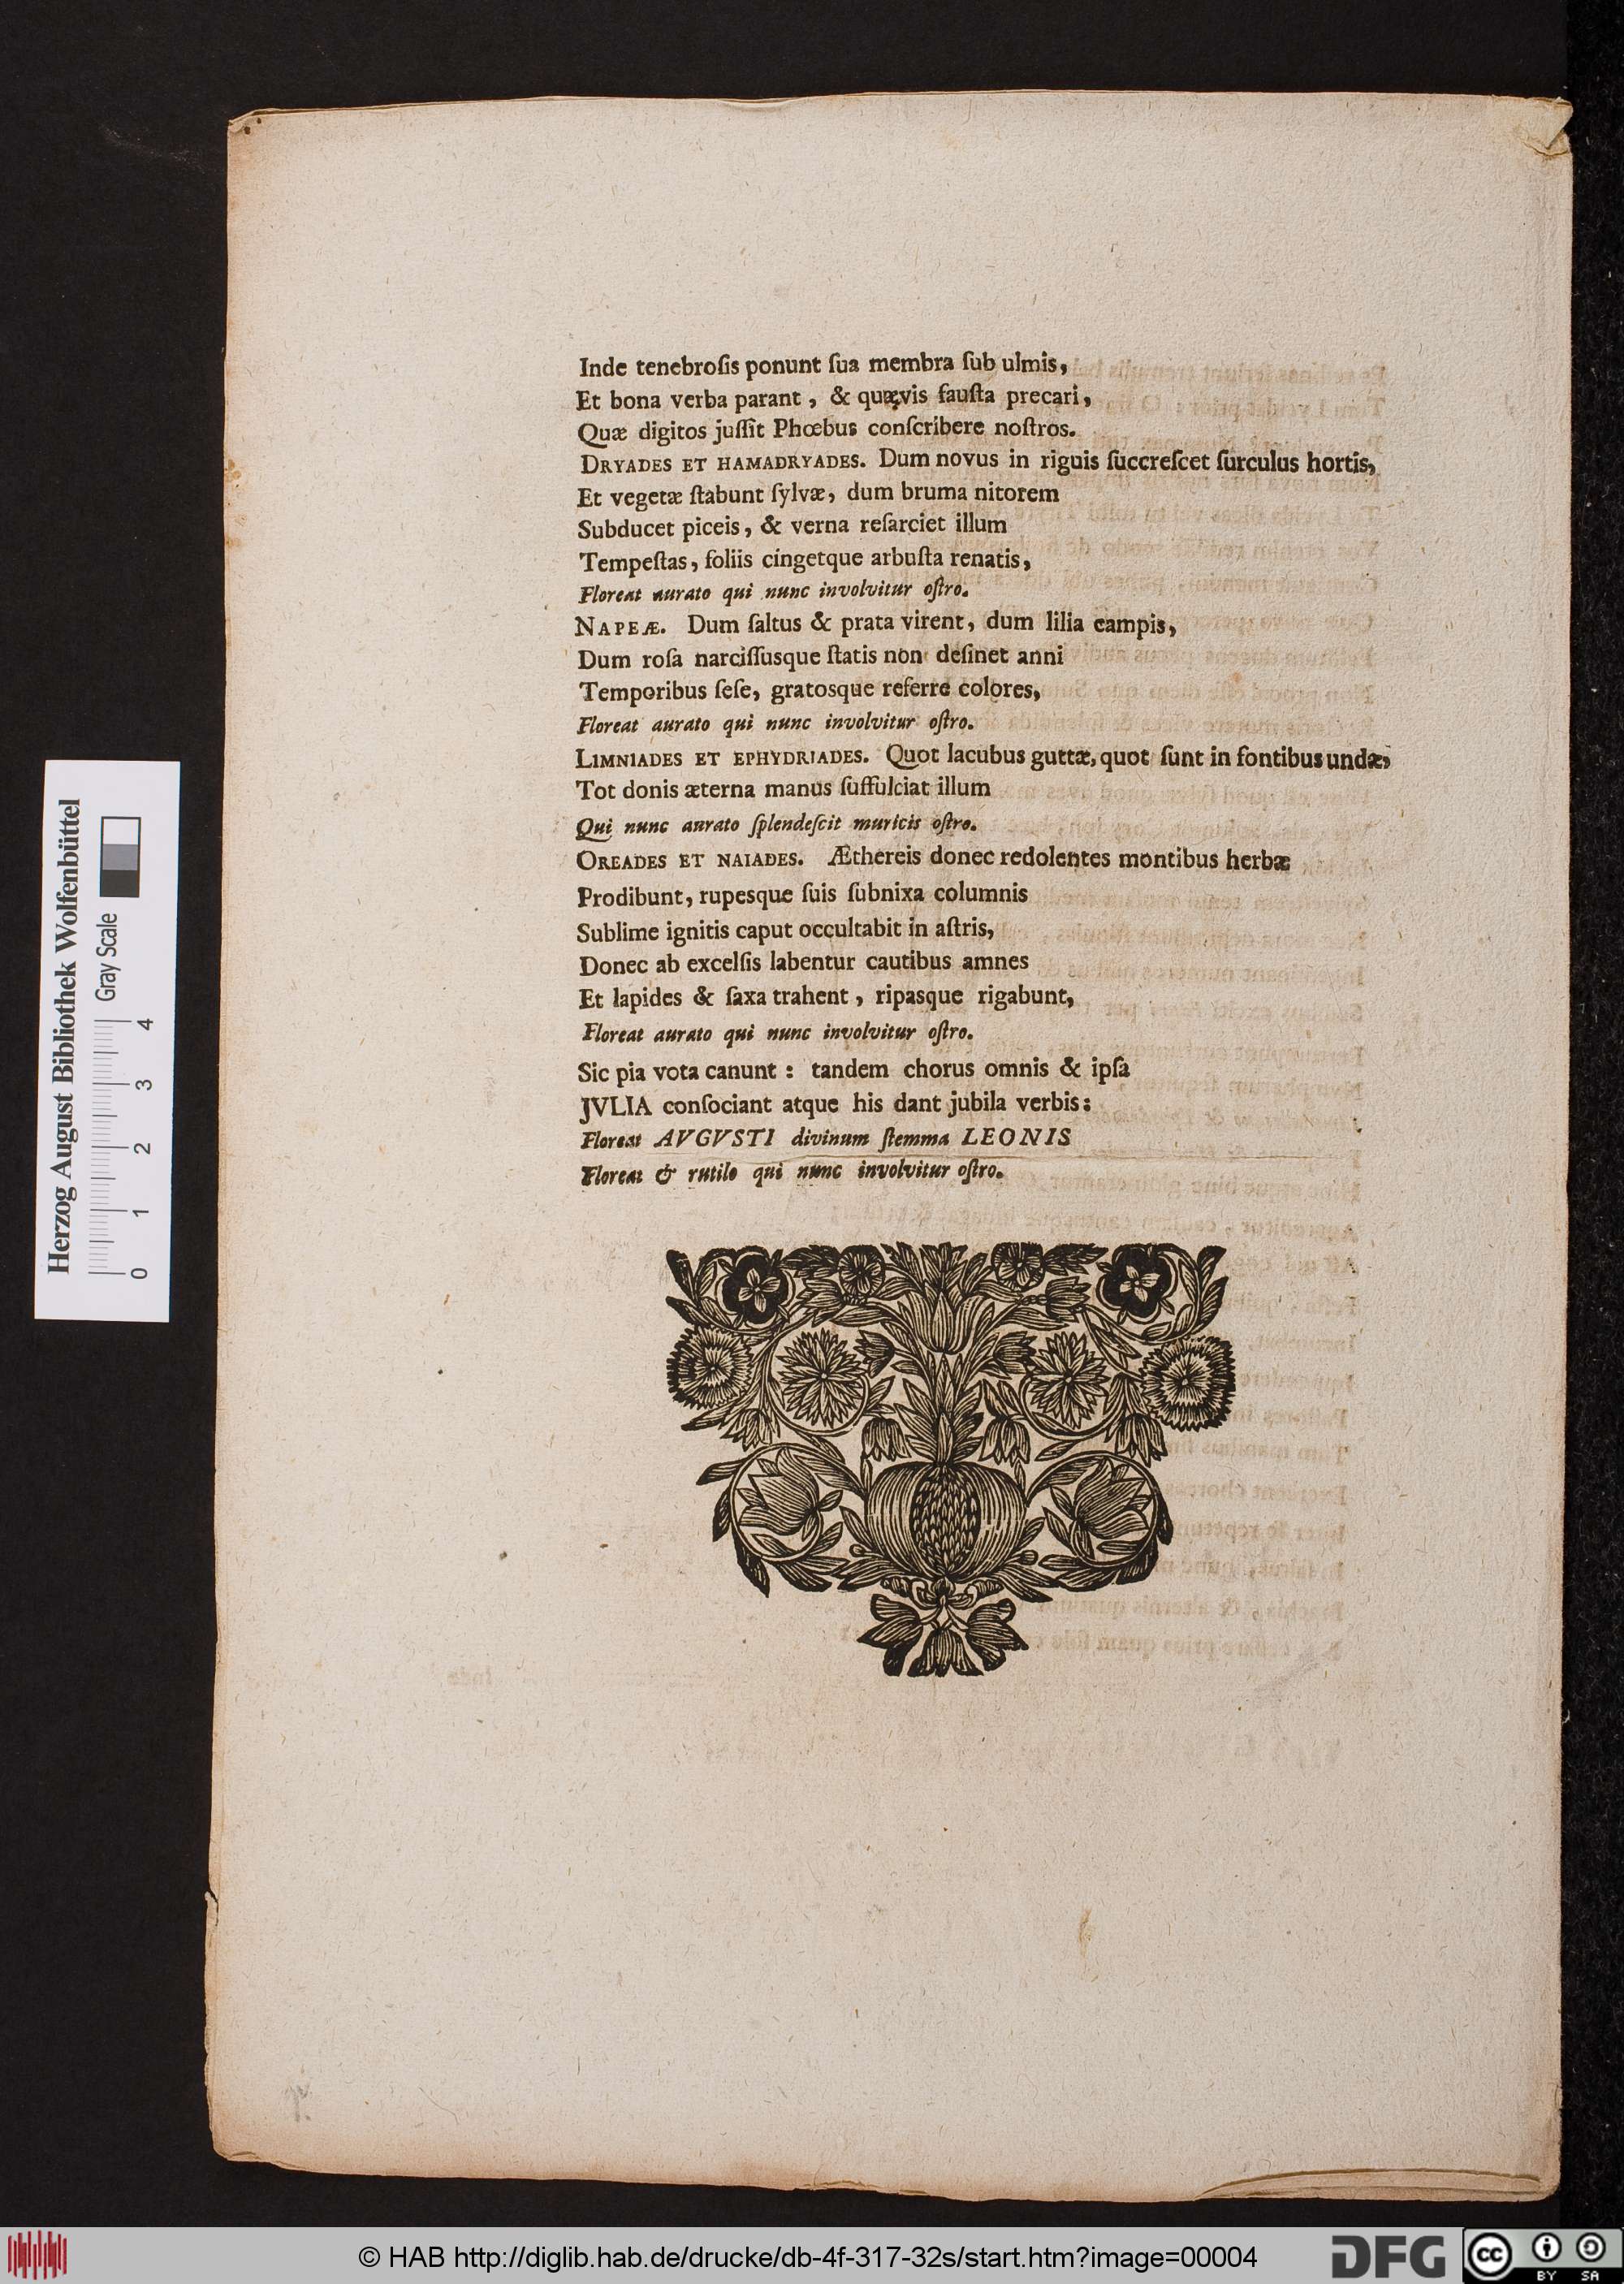 Inde tenebroſis ponunt ſua membra ſub ulmis,
Et bona verba parant, & quævis fauſta precari,
Quæ digitos juſſit Phœbus conſcribere noſtros.
DRYADES ET HAMADRYADES. Dum novus in riguis ſuccreſcet ſurculus hortis,
Et vegetæ ſtabunt ſylvæ, dum bruma nitorem
Subducet piceis, & verna reſarciet illum
Tempeſtas, foliis cingetque arbuſta renatis,
Floreat aurato qui nunc involvitur oſtro.
NAPEÆ. Dum ſaltus & prata virent, dum lilia campis,
Dum roſa narciſſusque ſtatis non deſinet anni
Temporibus ſeſe, gratosque referre colores,
Floreat aurato qui nunc involvitur oſtro.
LIMNIADES ET EPHYDRIADES. Quot lacubus guttæ, quot ſunt in fontibus undæ,
Tot donis æterna manus ſuffulciat illum
Qui nunc aurato ſplendeſcit muricis oſtro.
OREADES ET NAIADES. Æthereis donec redolentes montibus herbæ
Prodibunt, rupesque ſuis ſubnixa columnis
Sublime ignitis caput occultabit in aſtris,
Donec ab excelſis labentur cautibus amnes
Et lapides & ſaxa trahent, ripasque rigabunt,
Floreat aurato qui nunc involvitur oſtro.
Sic pia vota canunt: tandem chorus omnis & ipſa
JVLIA conſociant atque his dant jubila verbis:
Floreat AVGVSTI divinum ſtemma LEONIS
Floreat & rutilo qui nunc involvitur oſtro.
Herzog August Bibliothek Wolfenbüttel
Gray Scale
0 1 2 3 4
© HAB http://diglib.hab.de/drucke/db-4f-317-32s/start.htm?image=00004
DFG
cc BY SA